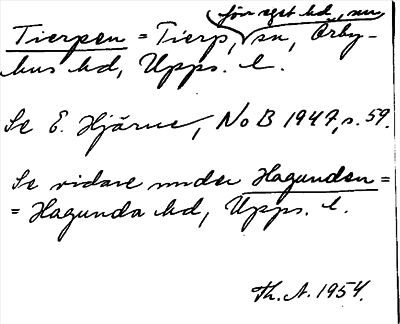 förr eget hd, nu
Tierpen = Tierp, sn, Örby-
hus hd, Upps. l.
Se E. Hjärne, NoB 1947, s. 59.
Se vidare under Hagunden =
= Hagunda hd, Upps. l.
Th. A. 1954.